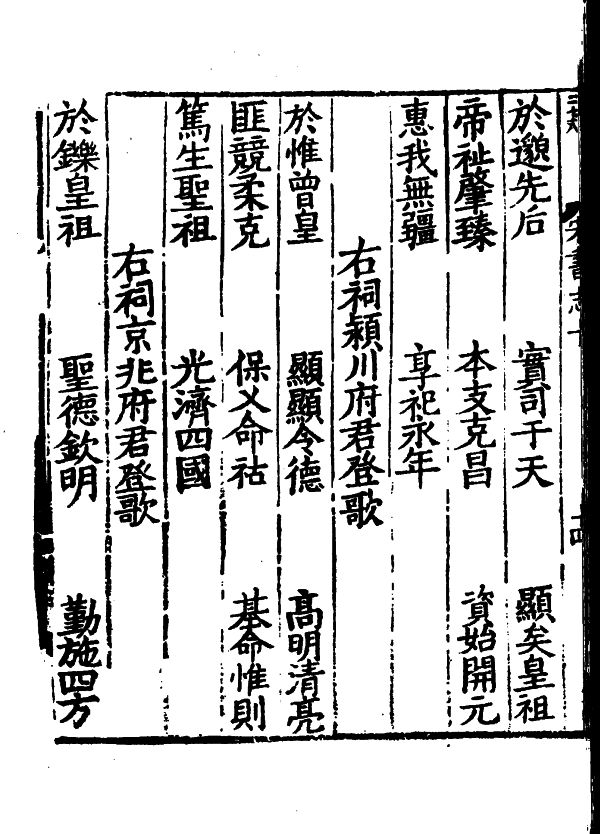 於邈先后　實司于天　顯矣皇祖
帝祉肇臻　本支克昌　資始開元
惠我無疆　享祀永年
右祠潁川府君登歌
於惟曾皇　顯顯令德　高明清亮
匪競柔克　保乂命祜　基命惟則
篤生聖祖　光濟四國
右祠京兆府君登歌
於鑠皇祖　聖德欽明　勤施四方